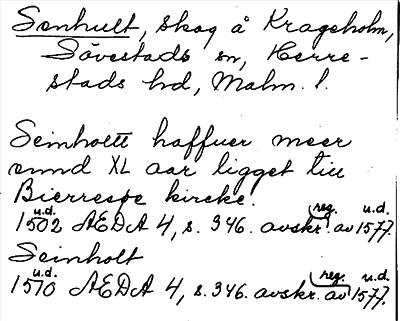 Senhult, skog å Krageholm,
Sövestads sn, Herre-
stads hd, Malm. l.
Seinholtt haffuer meer
ennd XL aar ligget till
Bierresøe kircke.
u.d. reg. u.d.
1502 AEDA 4, s. 346. avskr. av 1577.
Seinholt
u.d. reg. u.d.
1510 AEDA 4, s. 346. avskr. av 1577.